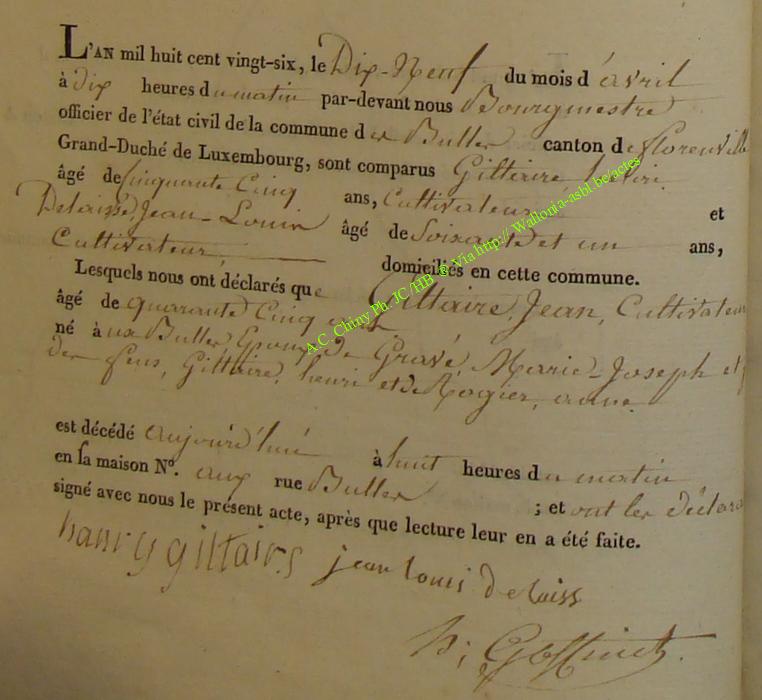 L'AN mil huit cent vingt-six, le Dix-Neuf du mois d'avril
à dix heures du matin par-devant nous Bourgmestre
officier de l'état civil de la commune des Bulles canton de florenville
Grand-Duché de Luxembourg, sont comparus Giltaire henri
âgé de Cinquante Cinq ans, Cultivateur et
Delaisse, Jean-Louis âgé de Soixante et un ans,
Cultivateur domiciliés en cette commune.
Lesquels nous ont déclarés que Giltaire, Jean, Cultivateur
âgé de quarante Cinq ans
né à aux Bulles Epoux de Gravé, Marie-Joseph et
des feus, Giltaire, henri et de Rogier, anne
est décédé aujourd'hui à huit heures du matin
en sa maison N°. aux rue Bulles ; et ont les déclara
signé avec nous le présent acte, après que lecture leur en a été faite.
hanry giltairs jean louis delaiss
h; Goffinet
A.C. Chiny Ph. JC /HB © Via http:// Wallonia-asbl.be/actes